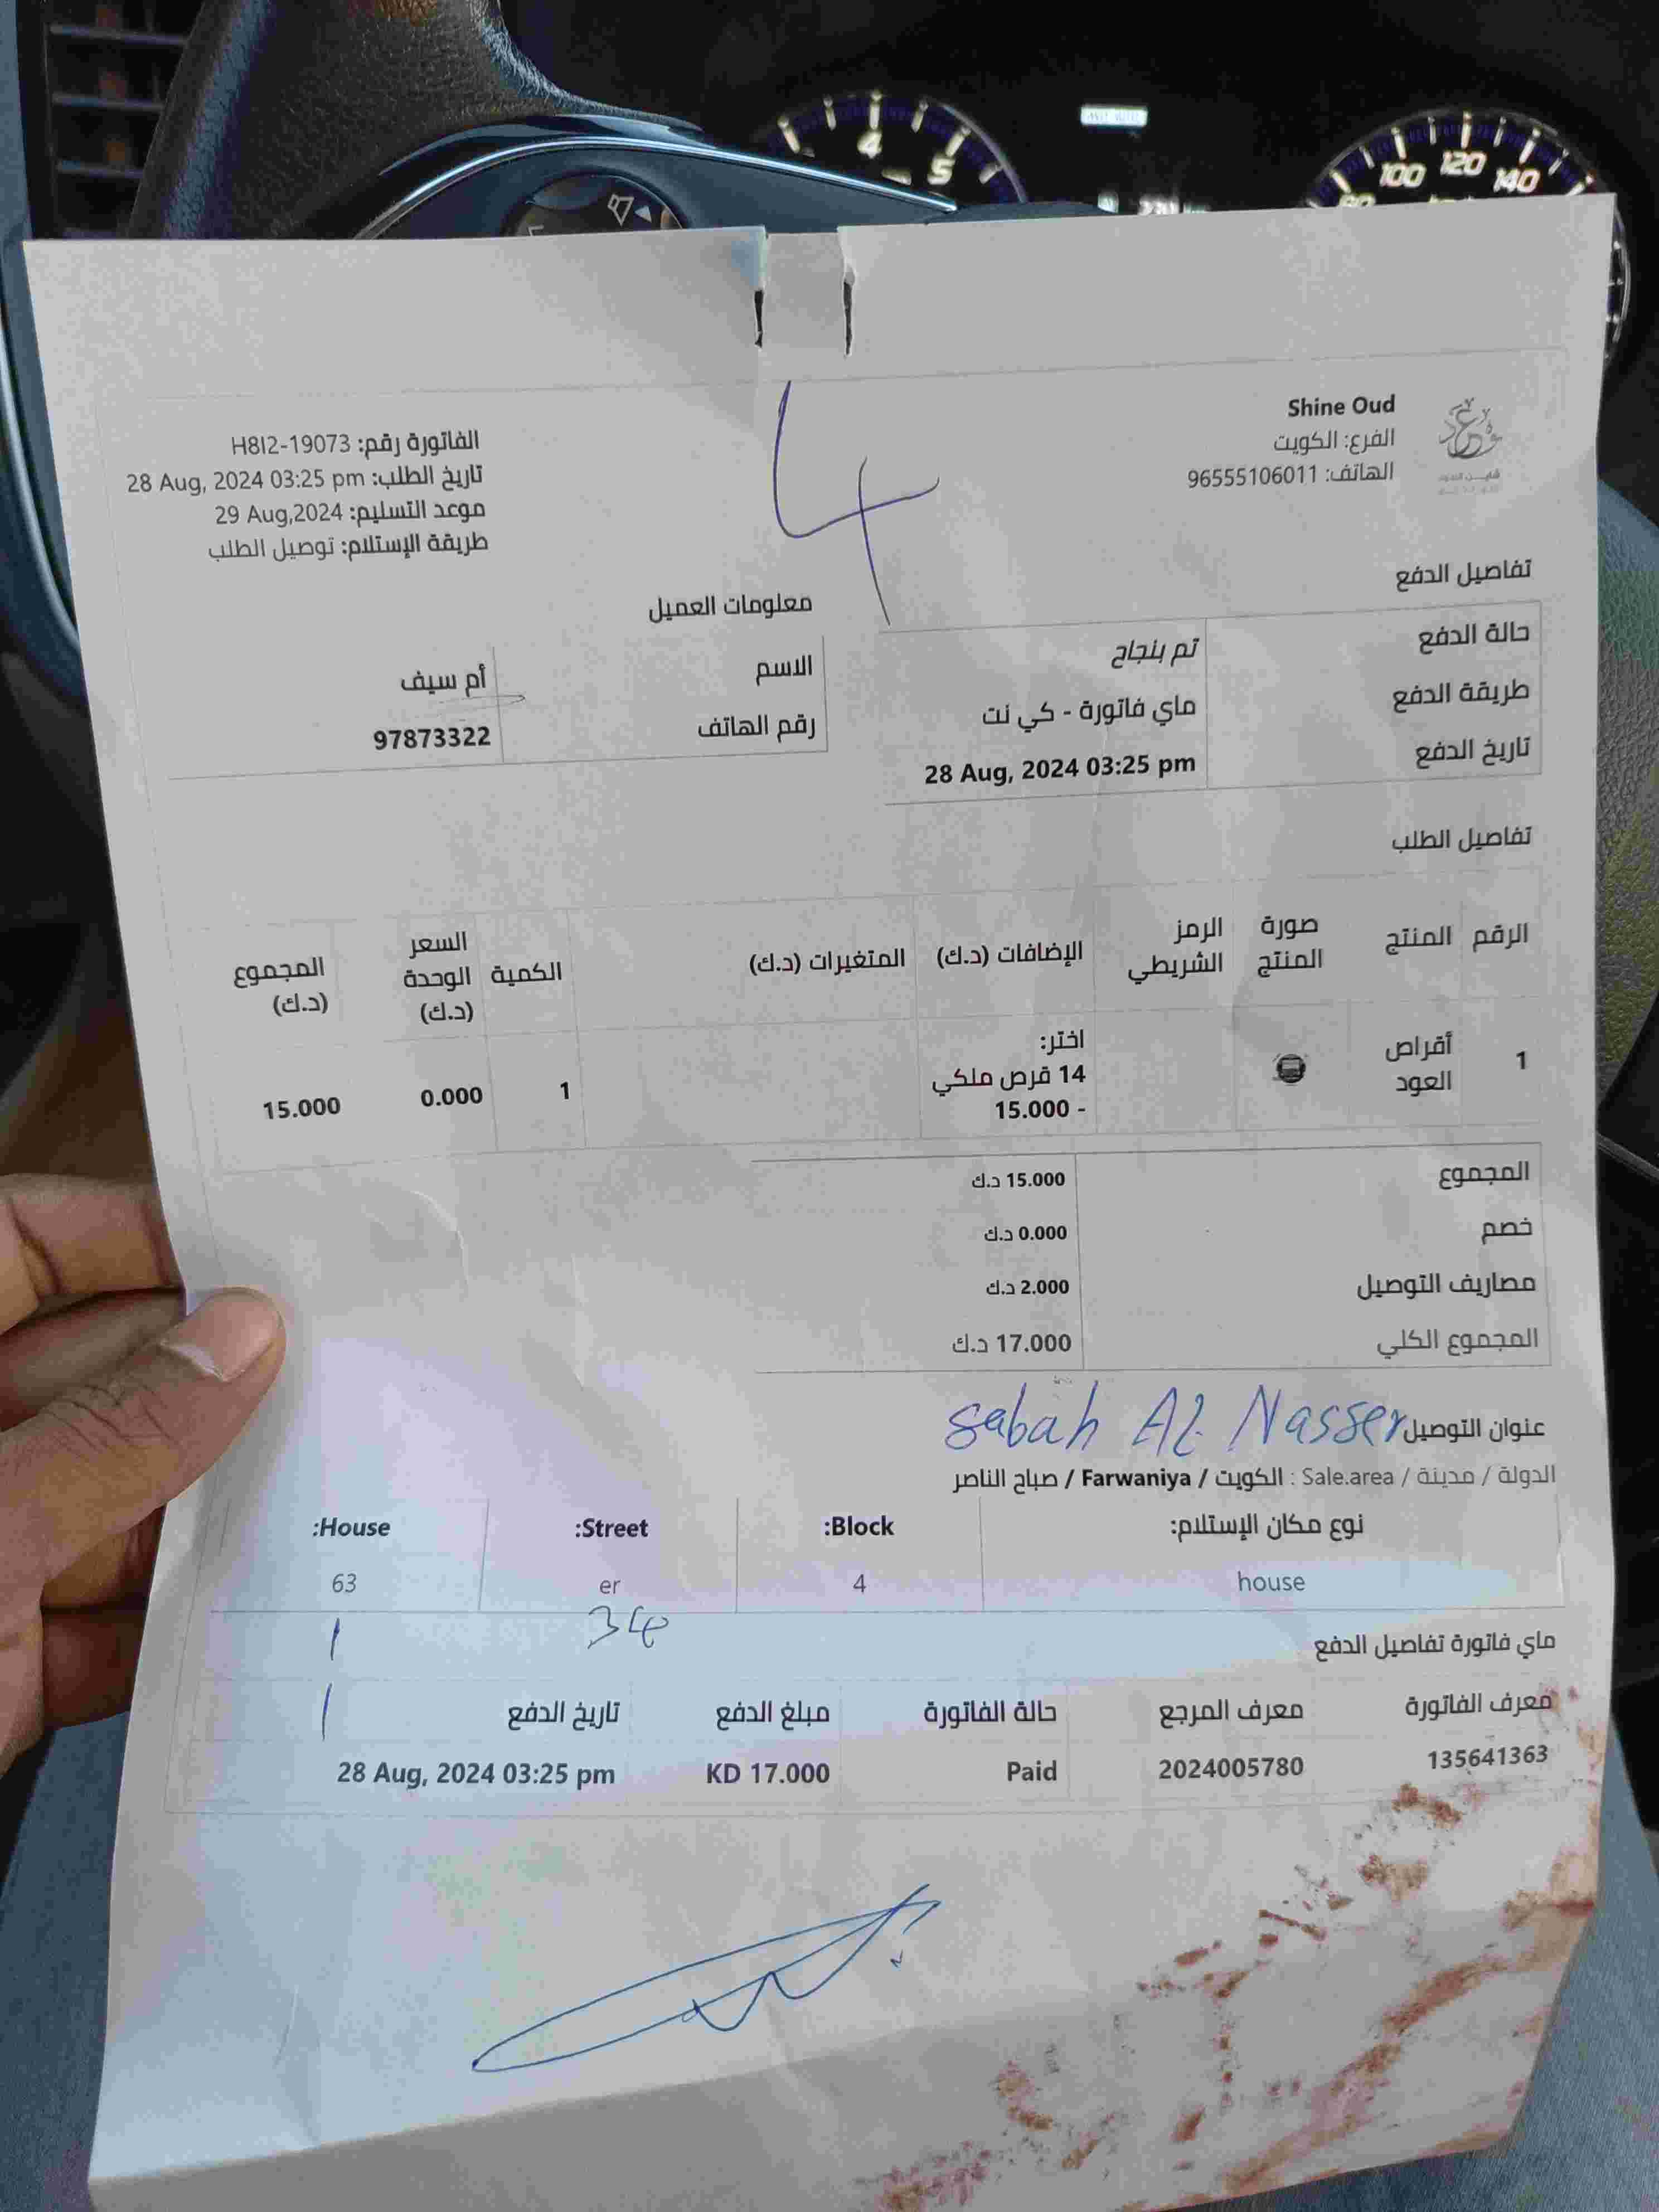 4
5
80
100
120
140
Shine Oud
الفرع: الكويت
الهاتف: 96555106011
الفاتورة رقم: H8I2-19073
تاريخ الطلب: 28 Aug, 2024 03:25 pm
موعد التسليم: 29 Aug,2024
طريقة الإستلام: توصيل الطلب
4
تفاصيل الدفع
حالة الدفع تم بنجاح
طريقة الدفع ماي فاتورة - كي نت
تاريخ الدفع 28 Aug, 2024 03:25 pm
معلومات العميل
الاسم أم سيف
رقم الهاتف 97873322
تفاصيل الطلب
الرقم المنتج صورة المنتج الرمز الشريطي الإضافات (د.ك) المتغيرات (د.ك) الكمية السعر الوحدة (د.ك) المجموع (د.ك)
1 أقراص العود اختر: 14 قرص ملكي - 15.000 1 0.000 15.000
المجموع 15.000 د.ك
خصم 0.000 د.ك
مصاريف التوصيل 2.000 د.ك
المجموع الكلي 17.000 د.ك
عنوان التوصيل Sabah Al Nasser
الدولة / مدينة / Sale.area : الكويت / Farwaniya / صباح الناصر
نوع مكان الإستلام: Block: Street: House:
house 4 er 63
34
ماي فاتورة تفاصيل الدفع
معرف الفاتورة معرف المرجع حالة الفاتورة مبلغ الدفع تاريخ الدفع
135641363 2024005780 Paid KD 17.000 28 Aug, 2024 03:25 pm